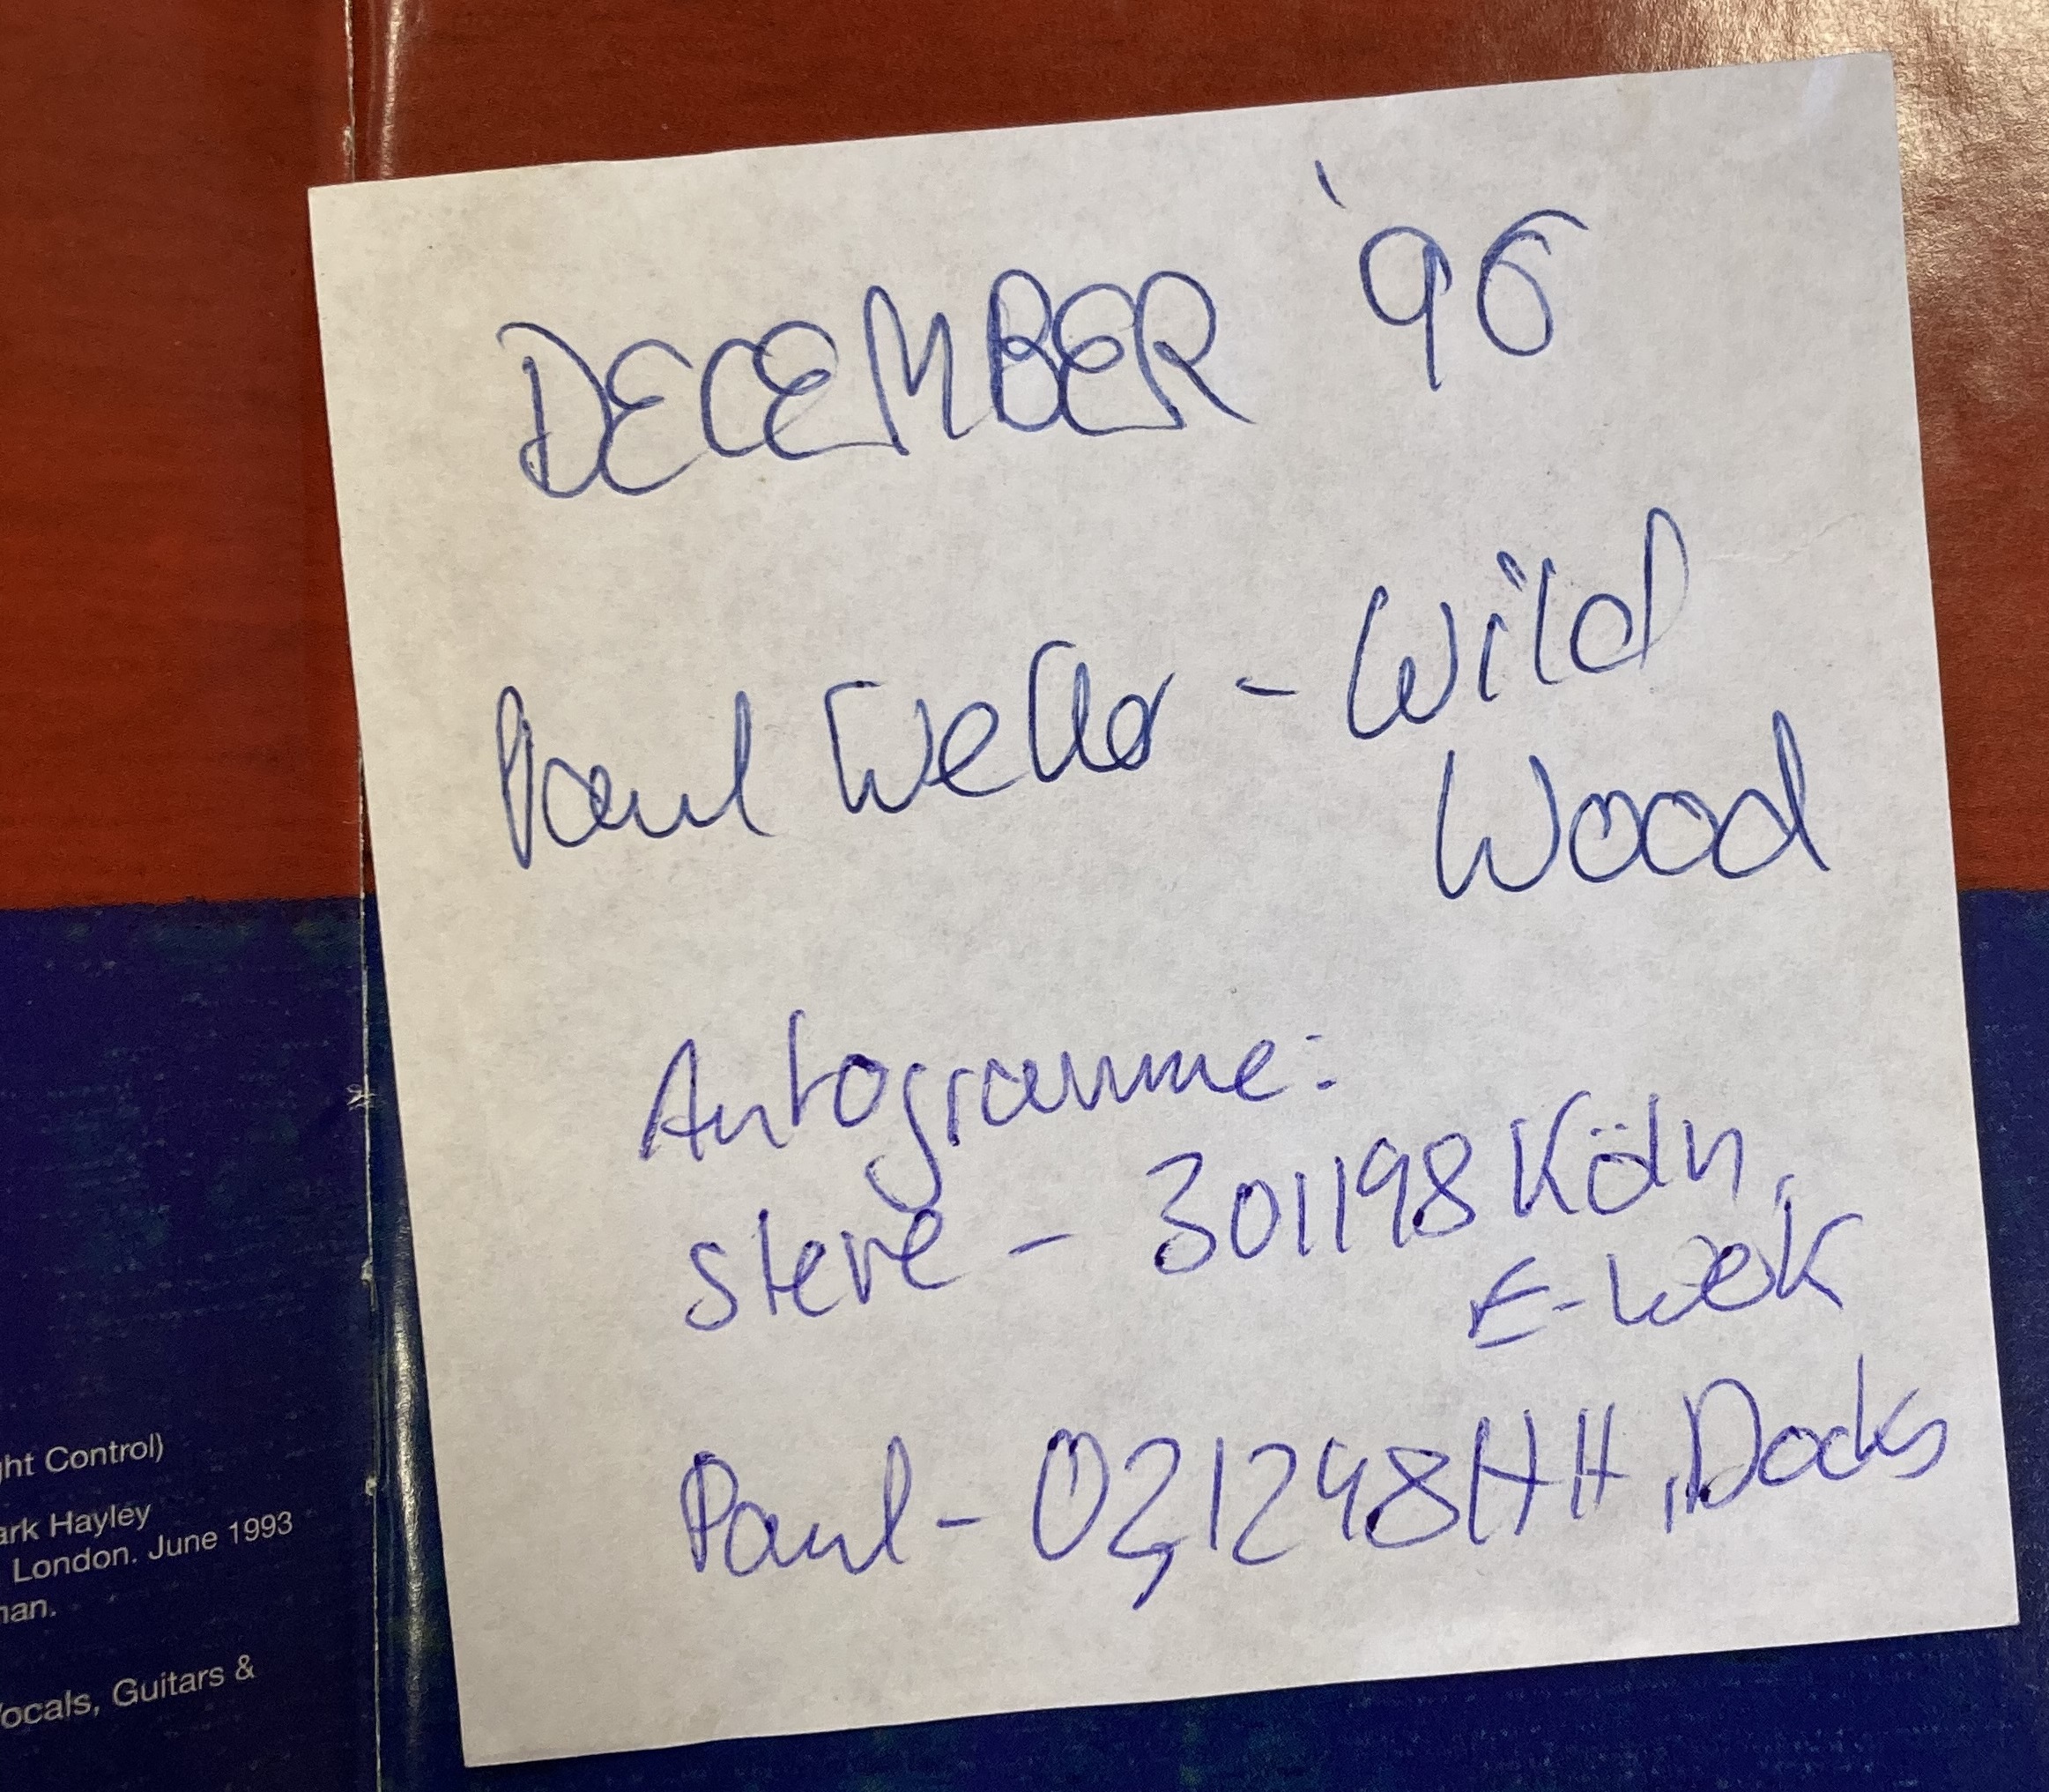 DECEMBER '96
Paul Weller - Wild
Wood
Autogramme:
Steve - 301198 Köln,
E-Werk
Paul - 021298 HH, Docks
ght Control)
ark Hayley
London. June 1993
nan.
Vocals, Guitars &